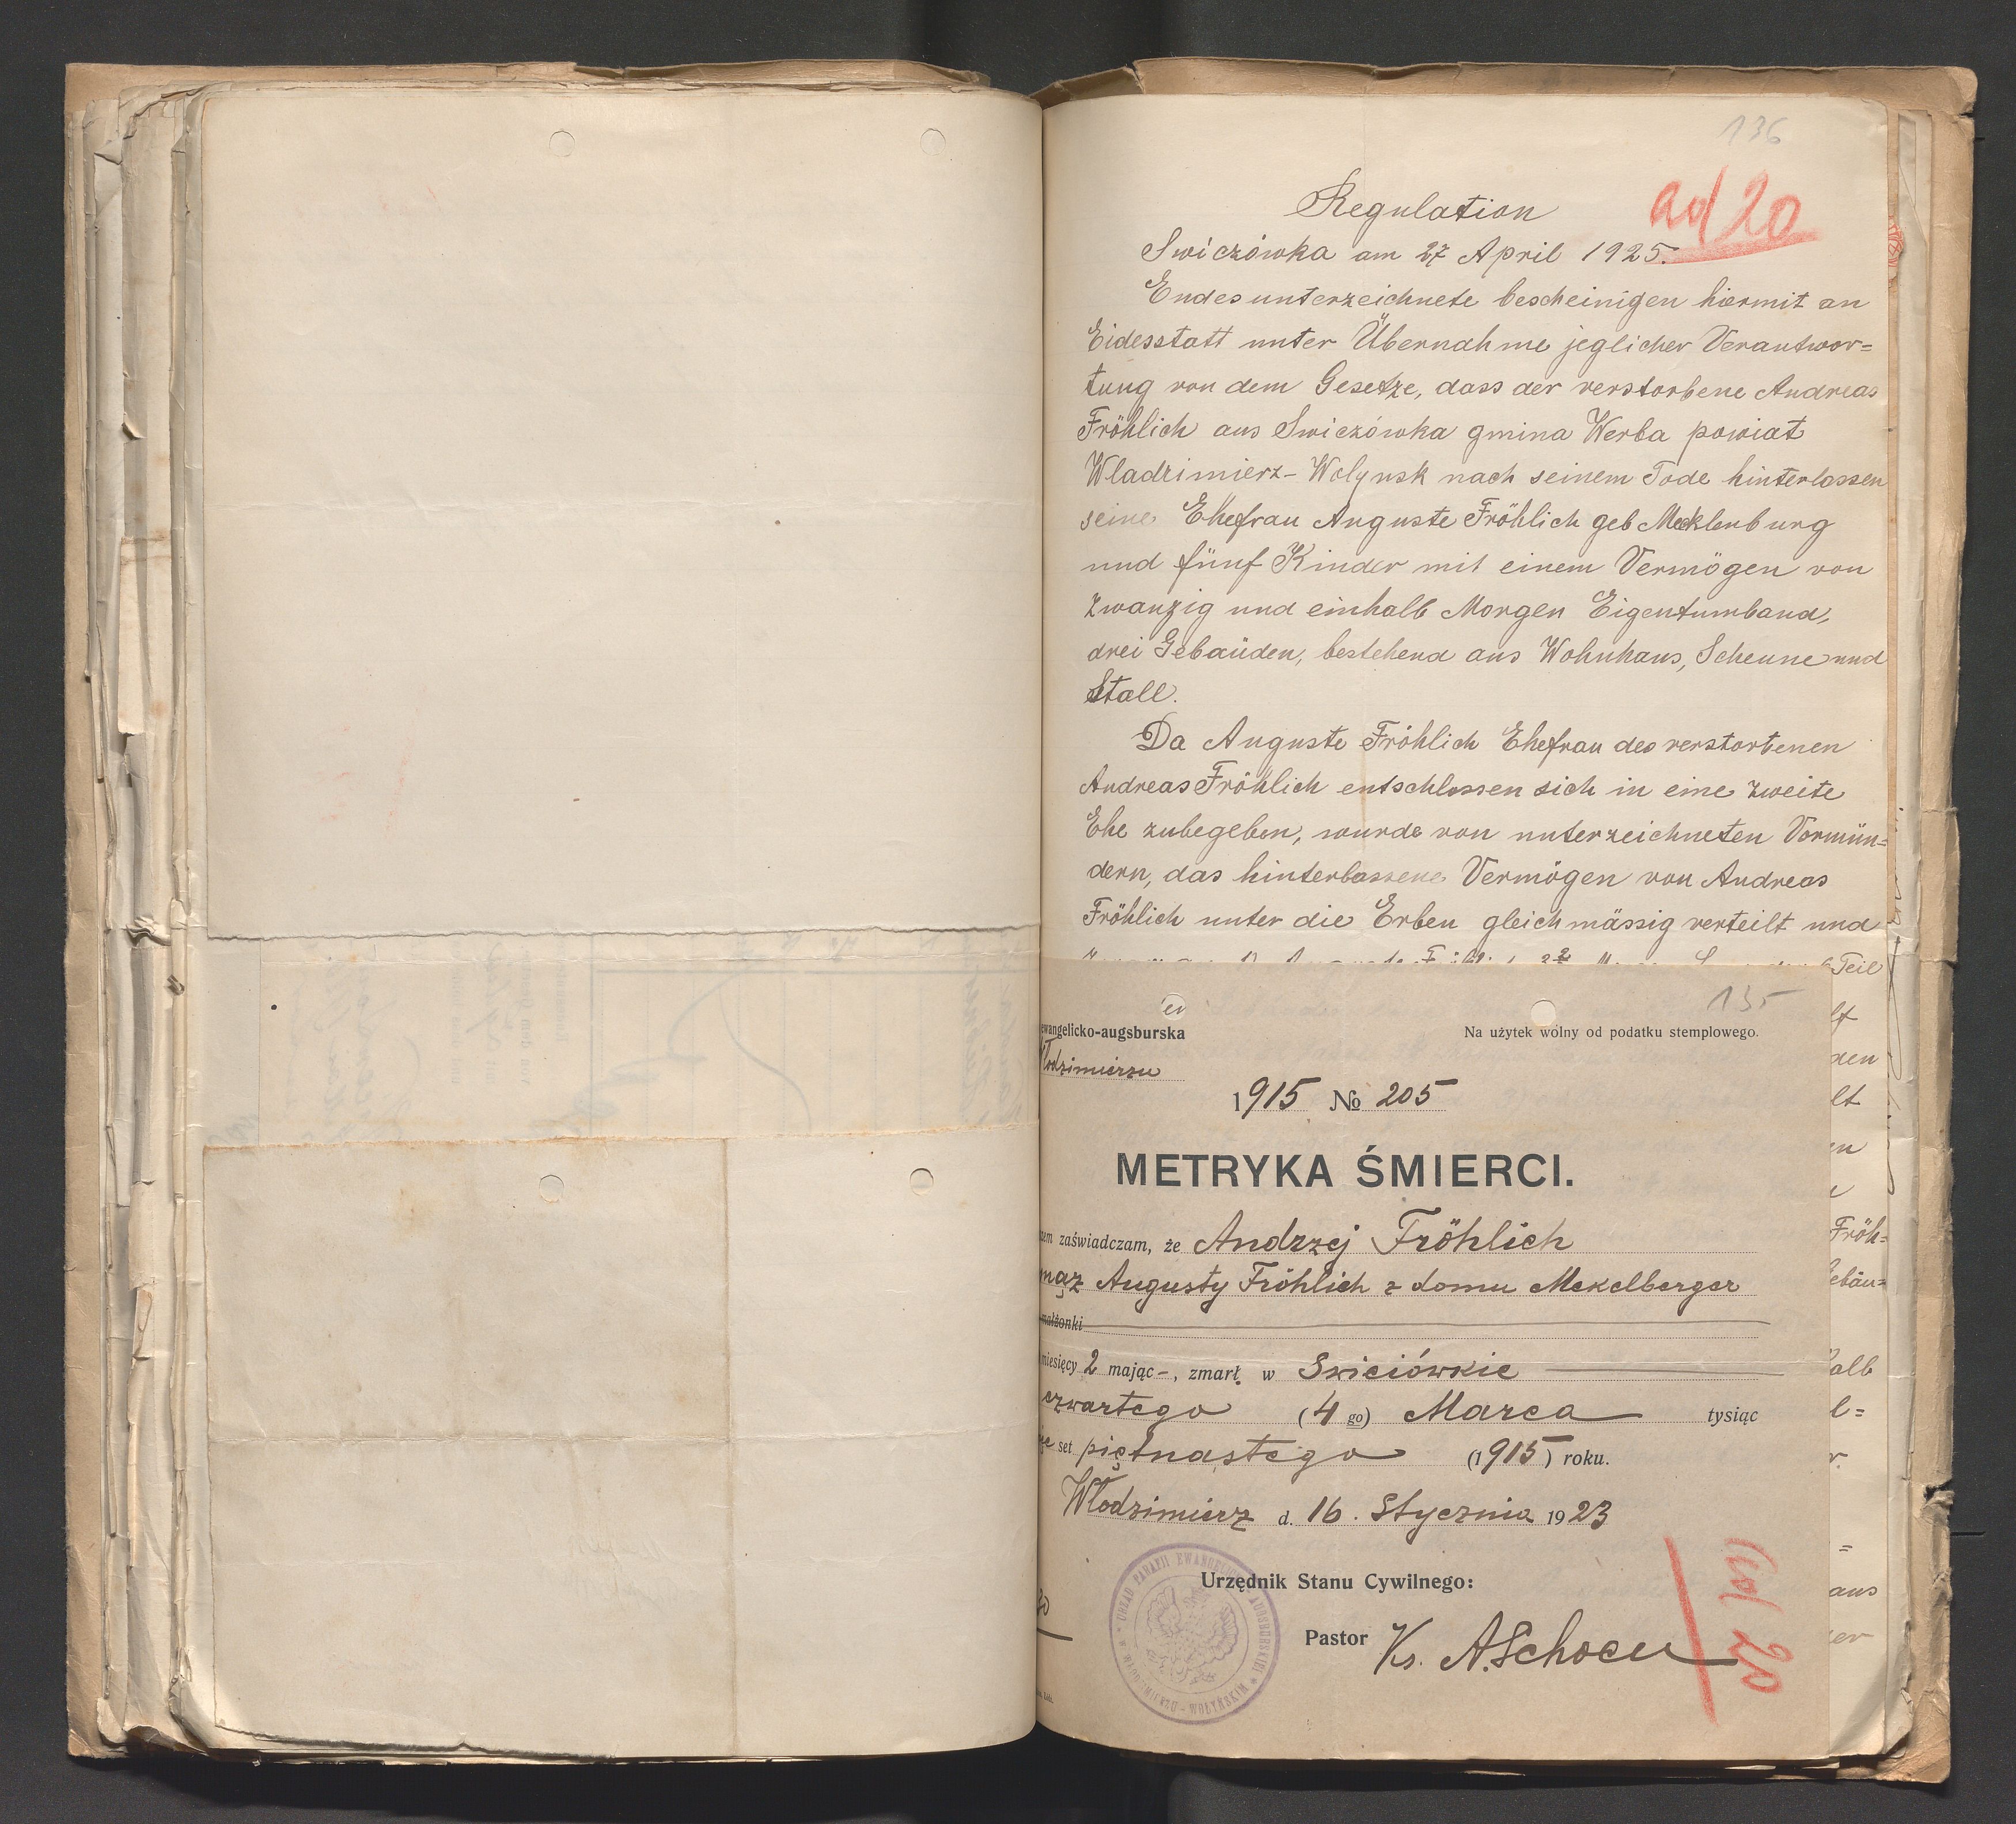 136
ad 20
Regulation
Swiczówka am 27 April 1925.
Endesunterzeichnete bescheinigen hiermit an
Eidesstatt unter Übernahme jeglicher Verantwor=
tung von dem Gesetze, dass der verstorbene Andreas
Fröhlich aus Swiczówka gmina Werba powiat
Wladzimierz-Wolynsk nach seinem Tode hinterlassen
seine Ehefrau Auguste Fröhlich geb Mecklenburg
und fünf Kinder mit einem Vermögen von
zwanzig und einhalb Morgen Eigentumband,
drei Gebaüden, bestehend aus Wohnhaus, Scheune und
Stall.
Da Auguste Fröhlich Ehefrau des verstorbenen
Andreas Fröhlich entschlossen sich in eine zweite
Ehe zubegeben, wurde von unterzeichneten Vormün=
dern, das hinterlassene Vermögen von Andreas
Fröhlich unter die Erben gleichmässig verteilt und
Teil
135
ewangelicko-augsburska
Na użytek wolny od podatku stemplowego.
Włodzimierzu
1915 № 205
METRYKA ŚMIERCI.
zaświadczam, że Andrzej Fröhlich
mąż Augusty Fröhlich z domu Mekelberger
małżonki
miesięcy 2 mając -, zmarł. w Swiciówkie
czwartego (4 go) Marca tysiąc
set piętnastego (1915) roku.
Włodzimierz d. 16. Stycznia 1923
Urzędnik Stanu Cywilnego:
Pastor Ks. A. Schoen
ad 20
den
lt
en
Fröh=
ebäu=
alb
l=
r.
=
aus
er